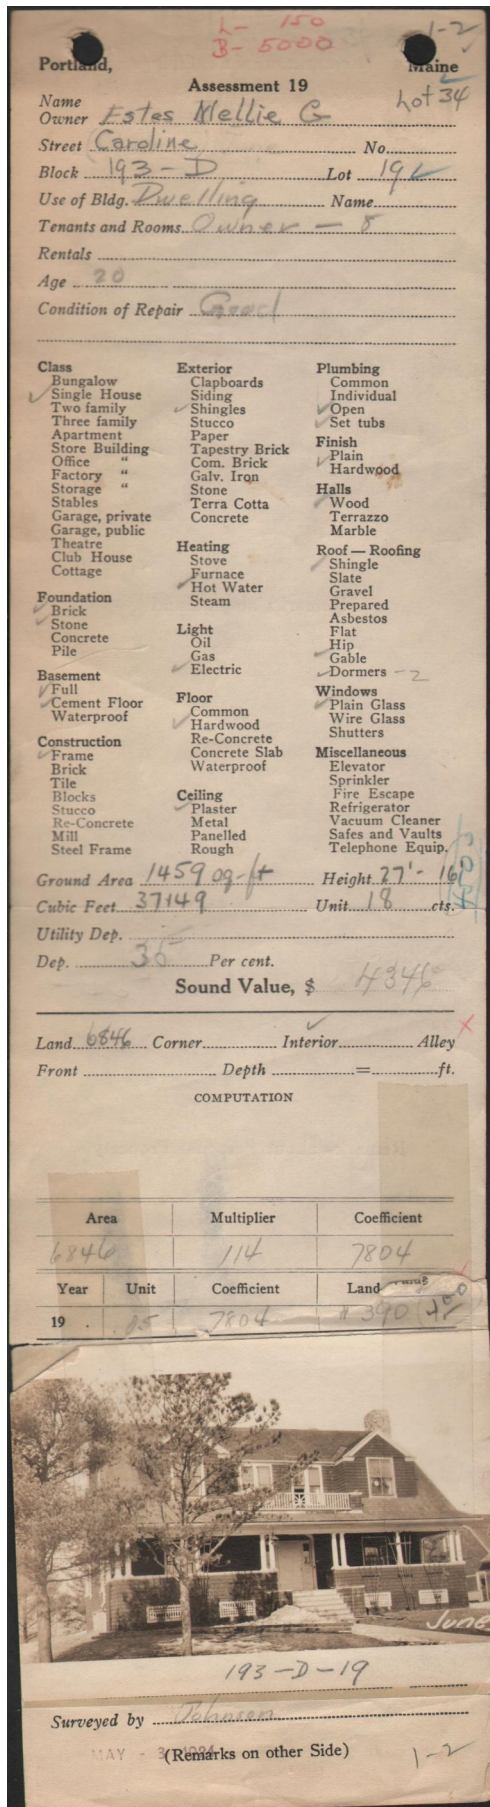 L- 150
B- 5000
1-2
Portland, Maine
Assessment 19
Lot 34
Name
Owner Estes Nellie G
Street Caroline No.
Block 193-D Lot 19
Use of Bldg. Dwelling Name
Tenants and Rooms Owner - 8
Rentals
Age 20
Condition of Repair Good
Class
Bungalow
Single House
Two family
Three family
Apartment
Store Building
Office "
Factory "
Storage "
Stables
Garage, private
Garage, public
Theatre
Club House
Cottage
Foundation
Brick
Stone
Concrete
Pile
Basement
Full
Cement Floor
Waterproof
Construction
Frame
Brick
Tile
Blocks
Stucco
Re-Concrete
Mill
Steel Frame
Exterior
Clapboards
Siding
Shingles
Stucco
Paper
Tapestry Brick
Com. Brick
Galv. Iron
Stone
Terra Cotta
Concrete
Heating
Stove
Furnace
Hot Water
Steam
Light
Oil
Gas
Electric
Floor
Common
Hardwood
Re-Concrete
Concrete Slab
Waterproof
Ceiling
Plaster
Metal
Panelled
Rough
Plumbing
Common
Individual
Open
Set tubs
Finish
Plain
Hardwood
Halls
Wood
Terrazzo
Marble
Roof — Roofing
Shingle
Slate
Gravel
Prepared
Asbestos
Flat
Hip
Gable
Dormers - 2
Windows
Plain Glass
Wire Glass
Shutters
Miscellaneous
Elevator
Sprinkler
Fire Escape
Refrigerator
Vacuum Cleaner
Safes and Vaults
Telephone Equip.
Ground Area 1459 sq-ft Height 27'- 16'
Cubic Feet 37149 Unit 18 cts.
Utility Dep.
Dep. 35 Per cent.
Sound Value, $ 4346
Land 6846 Corner Interior Alley
Front Depth = ft.
COMPUTATION
Area Multiplier Coefficient
6846 114 7804
Year Unit Coefficient Land Value
19 .05 7804 $ 390
June
193-D-19
Surveyed by Johnson
MAY - 3 1924
(Remarks on other Side)
1-2